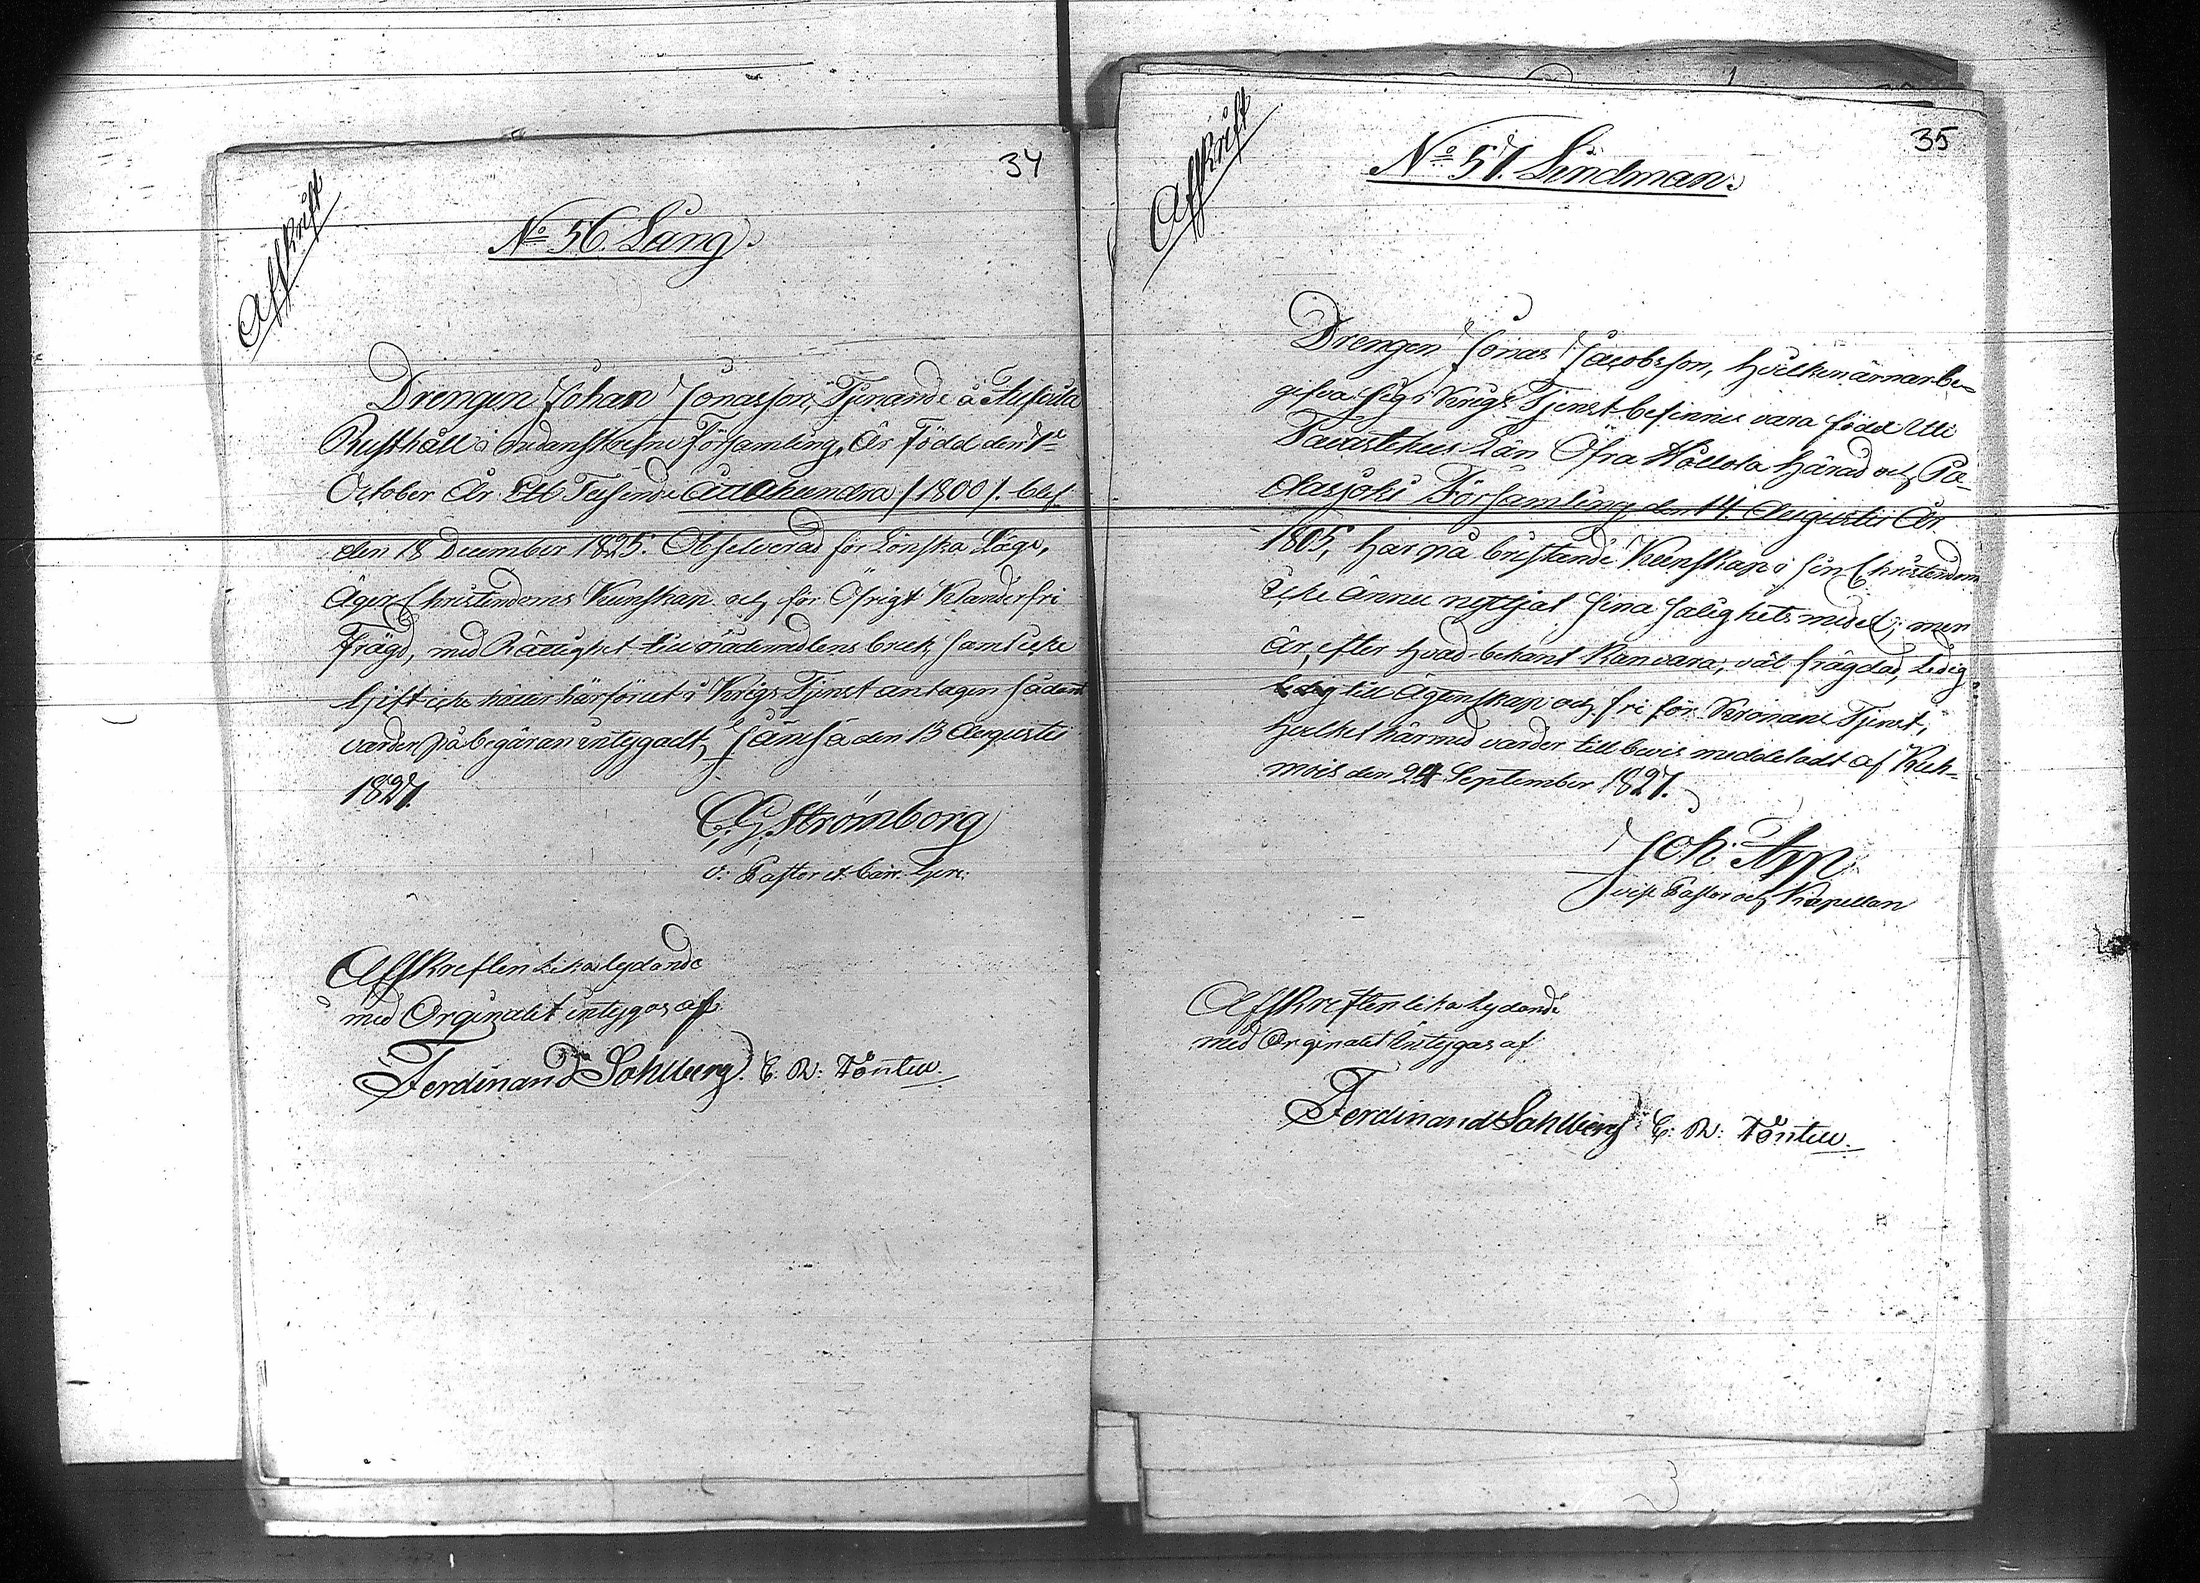 34
Afskrift
No 56. Lång.
Drengen Johan Jonasson, Tjenande å
Rusthåll i nedanskrefne Församling, är Född den 1e
October År Ett Tusende Åttahundra /:1800:/. blef
den 18 December 1825. Observerad för Lönska Läge,
Äger Christendoms Kunskap och för Öfrigt Klanderfri
Frägd, med Rättighet till nådemedlens bruk samt icke
Gift icke heller härförut i Krigs Tjenst antagen sådant
varder på begäran intygadt, Jämsä den 13 Augusti
1827.
C. G. Strömborg
v: Pastor
Afskreften lika lydande
med Orginalet intygas af
Ferdinand Sahlberg. C. W: Löntell.
35
Afskrift
No 57. Lindman.
Drengen Jonas Jacobsson, hvilken ärnar be-
gifva sig i Krigs Tjenst befinnes vara född Uti
Tavastehus Län Öfra Hållola härad och Pa-
dasjoki Församling den 14. Augusti År
1805, har på bristande Kunskap i sin Christendom
icke ännu nyttjat sina salighets medel; men
är, efter hvad bekant kan vara, väl frägdad, Ledig
till Ägtenskap och fri för Kronans Tjenst,
hvilket härmed varder till bevis meddeladt af Kuh-
mois den 24 September 1827.
Joh: App
vice Pastor och Kapellan
Afskreften lika lydande
med Orginalet intygas af
Ferdinand Sahlberg C. W: Löntell.